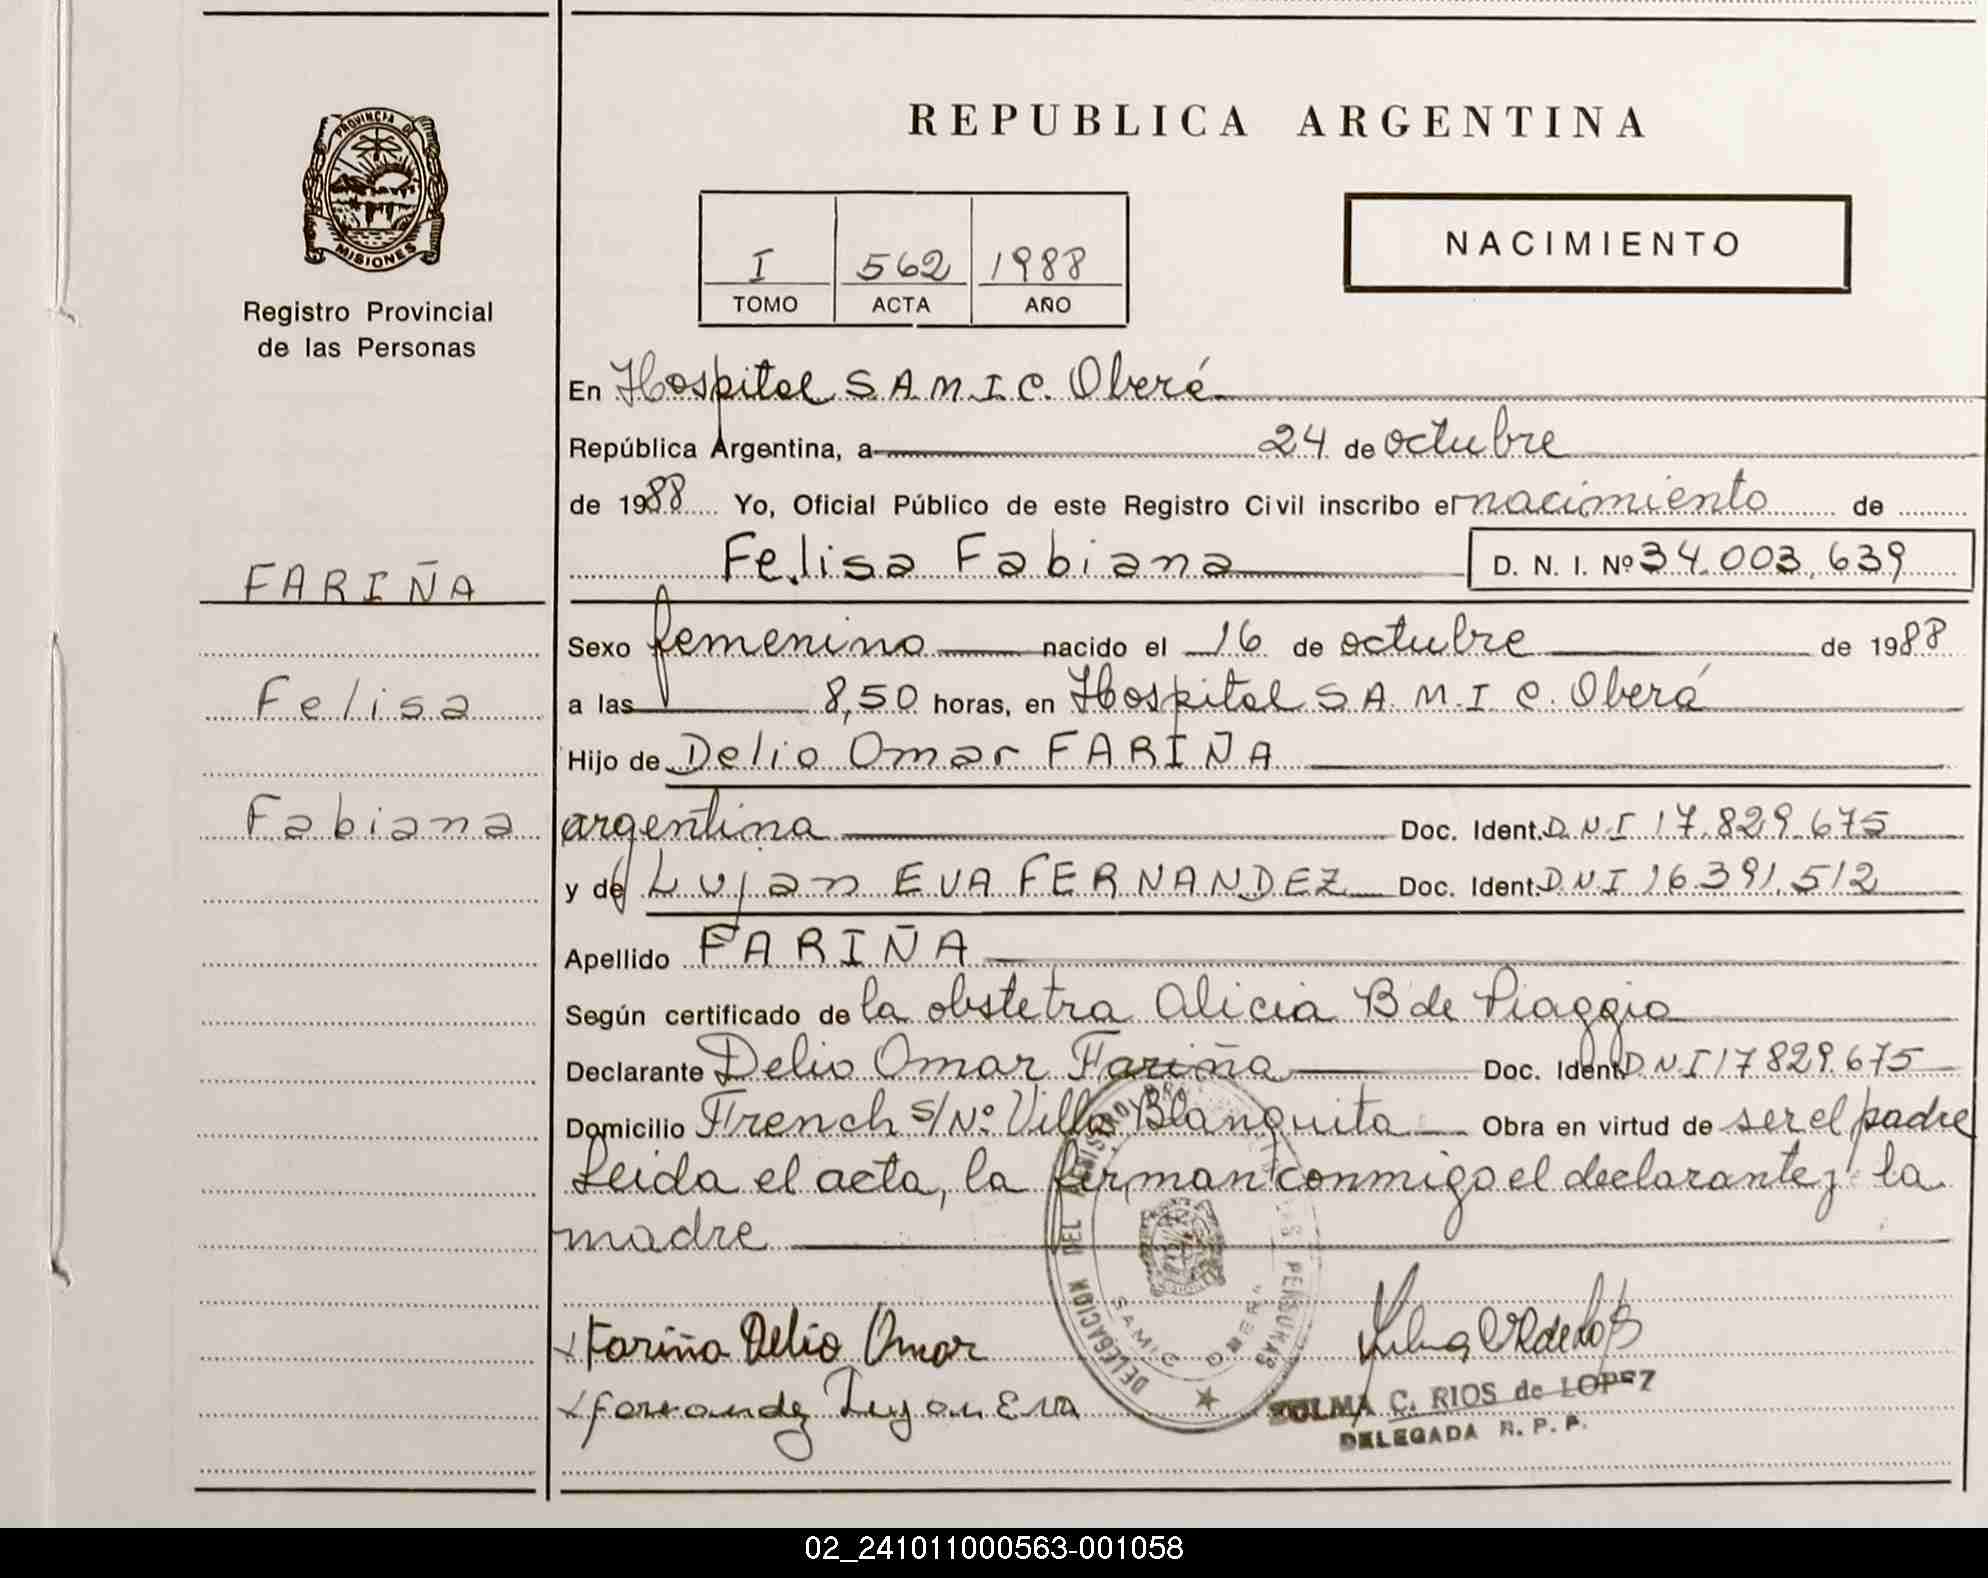 REPUBLICA ARGENTINA
PROVINCIA DE
MISIONES
Registro Provincial
de las Personas
I 562 1988
TOMO ACTA AÑO
NACIMIENTO
En Hospital S.A.M.I.C. Oberá
República Argentina, a 24 de octubre
de 1988 Yo, Oficial Público de este Registro Civil inscribo el nacimiento de
Felisa Fabiana D. N. I. Nº 34.003.639
FARIÑA
Felisa
Fabiana
Sexo femenino nacido el 16 de octubre de 1988
a las 8,50 horas, en Hospital S.A.M.I.C. Oberá
Hijo de Delio Omar FARIÑA
argentina Doc. Ident. D.N.I 17.829.675
y de Lujan EVA FERNANDEZ Doc. Ident. D N I 16.391.512
Apellido FARIÑA
Según certificado de la obstetra Alicia B de Piaggio
Declarante Delio Omar Fariña Doc. Ident. D N I 17829.675
Domicilio French s/Nº Villa Blanquita Obra en virtud de ser el padre
Leida el acta, la firman conmigo el declarante y la
madre
DELEGACION DEL REGISTRO PERSONAS
SAMIC
Fariña Delio Omar
Fernandez Lujan Eva
C. RIOS de LOPEZ
DELEGADA R. P. P.
02_241011000563-001058